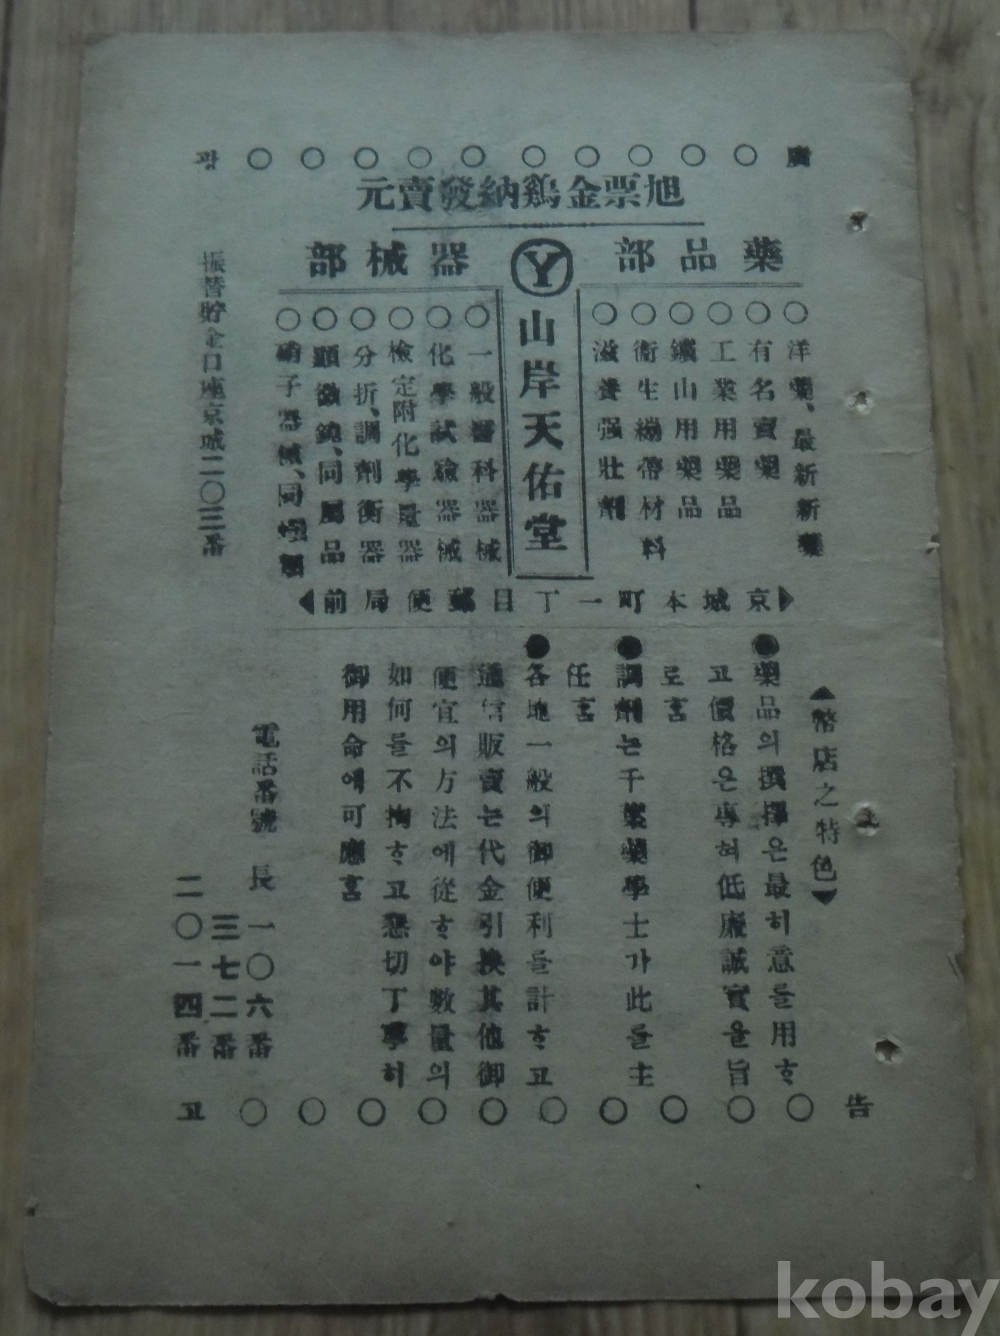 廣○○○○○○○○○○광
旭票金鷄納發賣元
藥品部
○洋藥、最新新藥
○有名賣藥
○工業用藥品
○鑛山用藥品
○衛生繃帶材料
○滋養强壯劑
Y
山岸天佑堂
器械部
○一般醫科器械
○化學試驗器械
○檢定附化學量器
○分折、調劑衡器
○顯微鏡、同屬品
○硝子器械、同
振替貯金口座京城二〇三番
京城本町一丁目郵便局前
幣店之特色
●藥品의撰擇은最히意를用ᄒ
고價格은專혀低廉誠實을旨
로홈
●調劑는千葉藥學士가此를主
任홈
●各地一般의御便利를計ᄒ고
通信販賣는代金引換其他御
便宜의方法에從ᄒ야數量의
如何를不拘ᄒ고懇切丁寧히
御用命에可應홈
電話番號 長一〇六番
三七二番
二〇一四番
告○○○○○○○○○○고
kobay